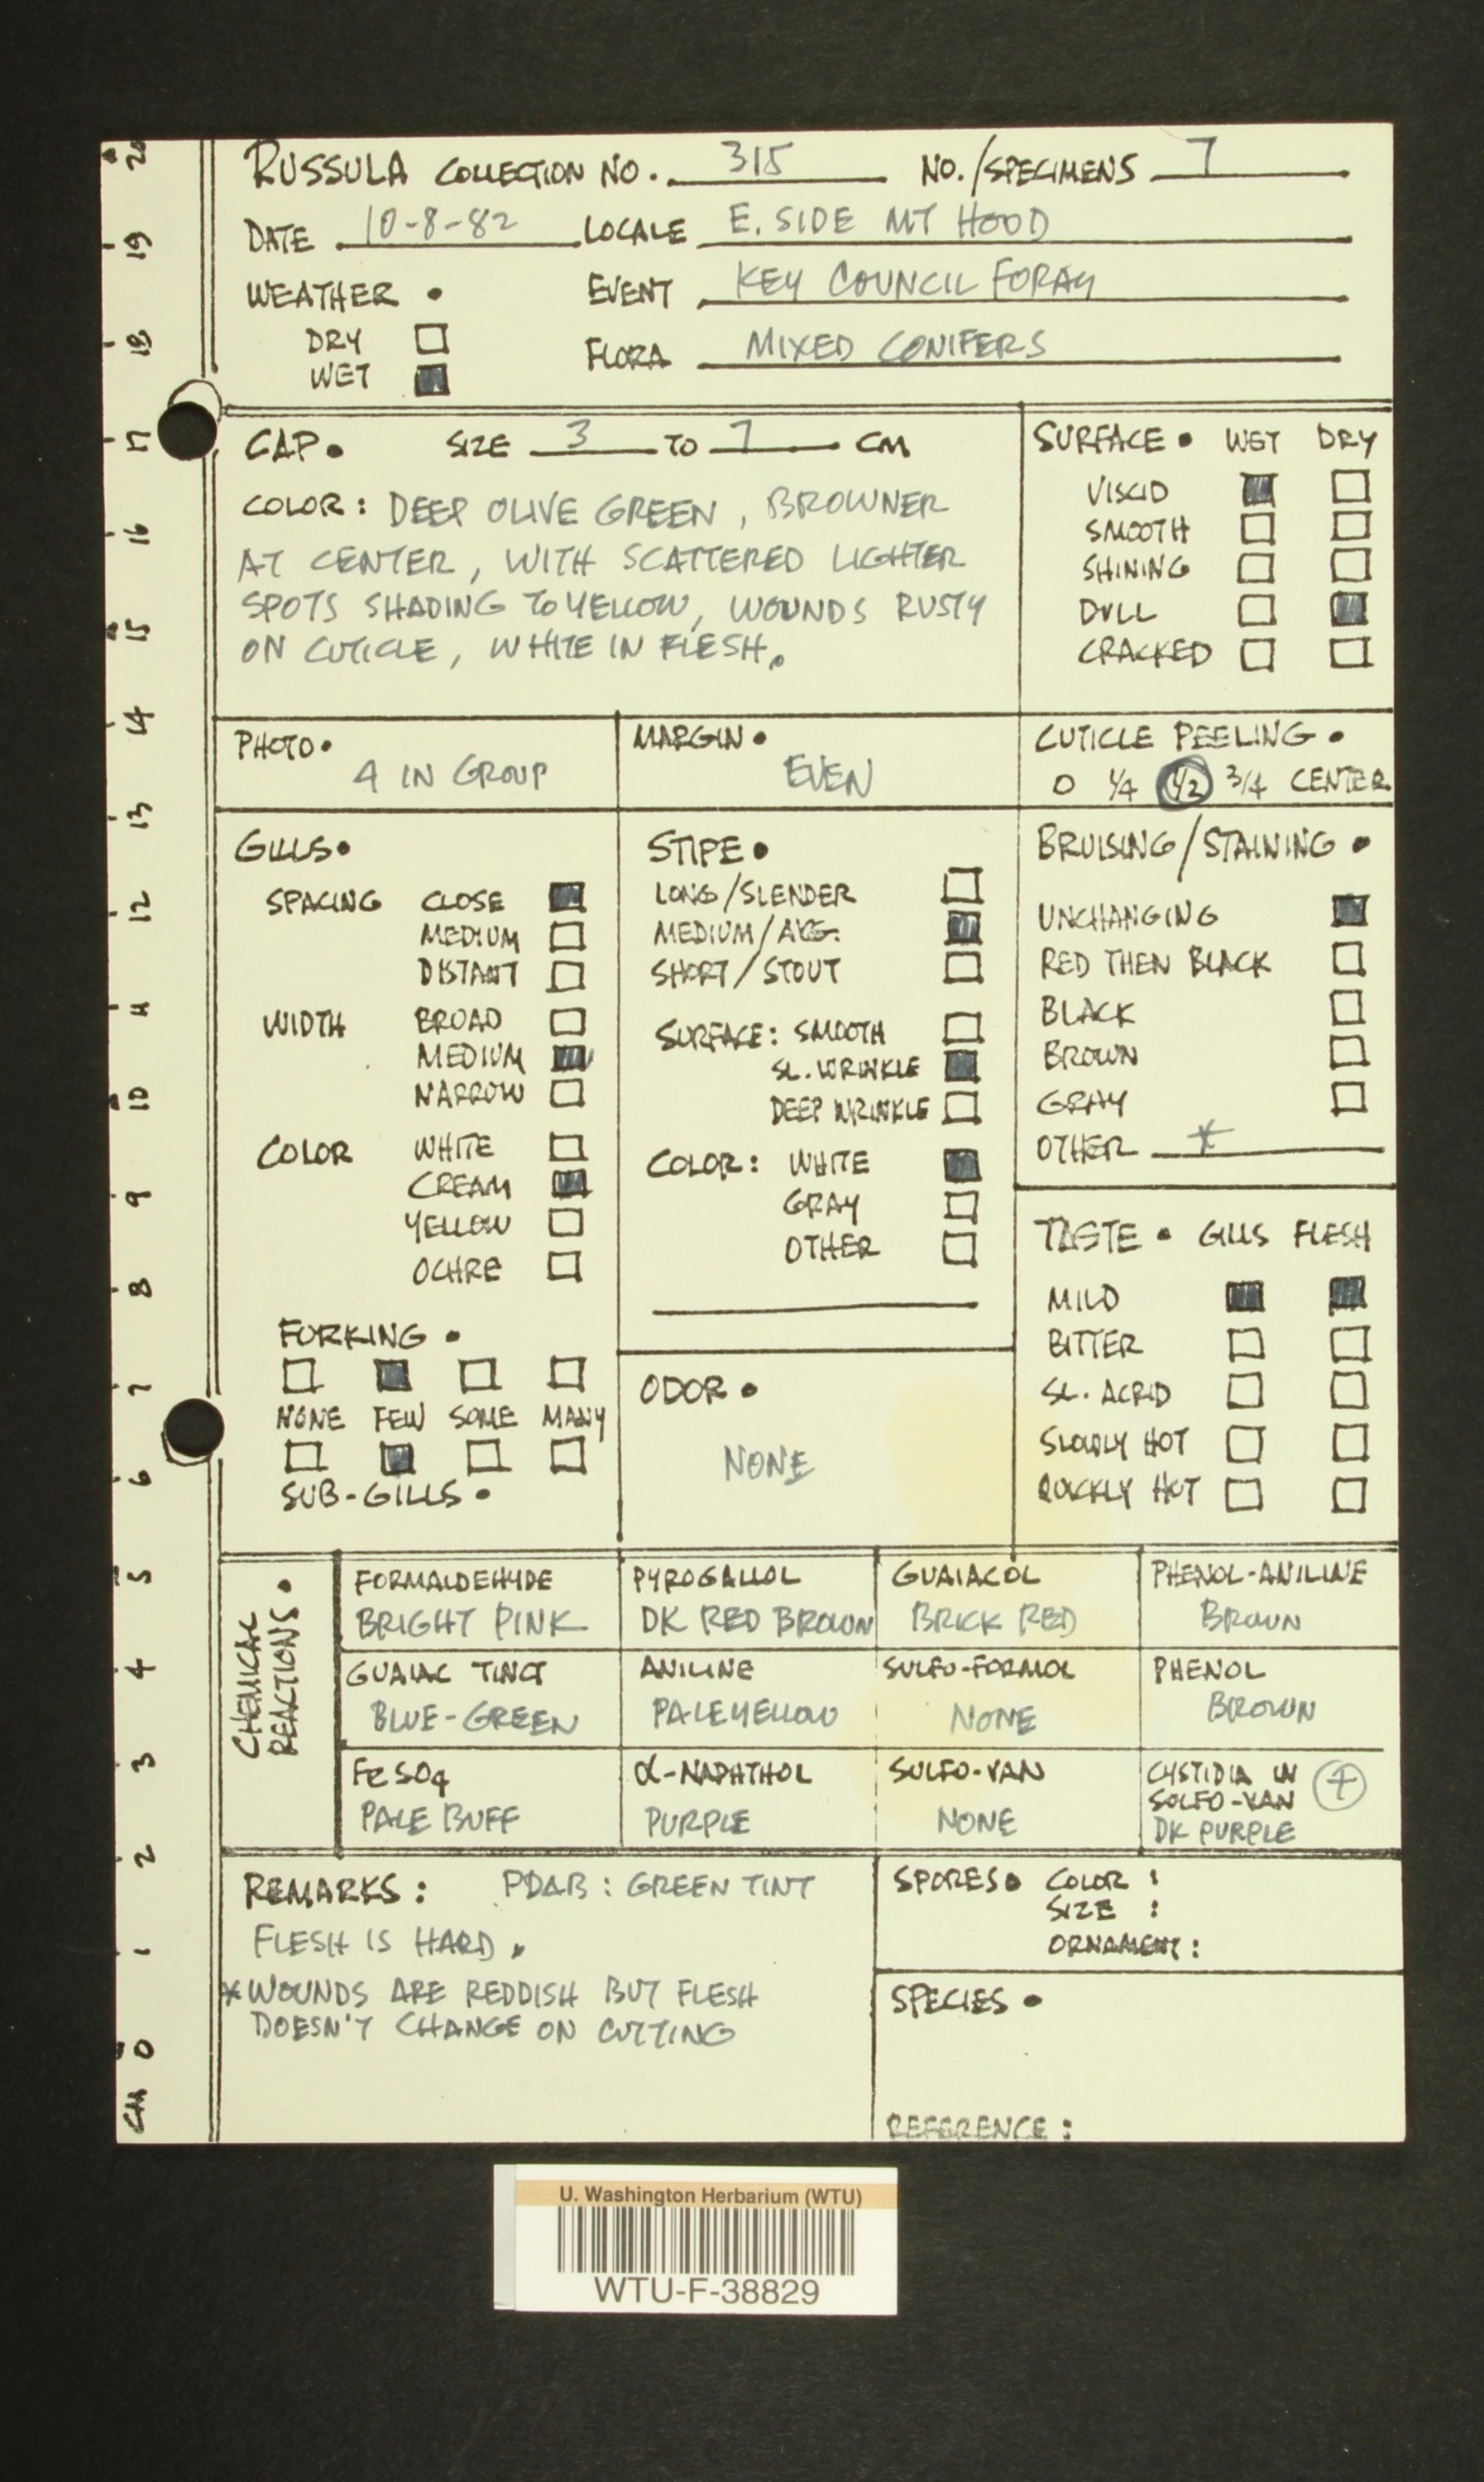 RUSSULA COLLECTION NO. 315 NO./SPECIMENS 7
DATE 10-8-82 LOCALE E. SIDE MT HOOD
WEATHER • EVENT KEY COUNCIL FORAY
DRY
WET
FLORA MIXED CONIFERS
CAP • SIZE 3 TO 7 CM
COLOR: DEEP OLIVE GREEN, BROWNER
AT CENTER, WITH SCATTERED LIGHTER
SPOTS SHADING TO YELLOW, WOUNDS RUSTY
ON CUTICLE, WHITE IN FLESH.
SURFACE • WET DRY
VISCID
SMOOTH
SHINING
DULL
CRACKED
PHOTO •
4 IN GROUP
MARGIN •
EVEN
CUTICLE PEELING •
0 1/4 1/2 3/4 CENTER
GILLS •
SPACING CLOSE
MEDIUM
DISTANT
WIDTH BROAD
MEDIUM
NARROW
COLOR WHITE
CREAM
YELLOW
OCHRE
FORKING •
NONE FEW SOME MANY
SUB-GILLS •
STIPE •
LONG/SLENDER
MEDIUM/AVG.
SHORT/STOUT
SURFACE: SMOOTH
SL. WRINKLE
DEEP WRINKLE
COLOR: WHITE
GRAY
OTHER
ODOR •
NONE
BRUISING/STAINING •
UNCHANGING
RED THEN BLACK
BLACK
BROWN
GRAY
OTHER *
TASTE • GILLS FLESH
MILD
BITTER
SL. ACRID
SLOWLY HOT
QUICKLY HOT
CHEMICAL
REACTIONS •
FORMALDEHYDE
BRIGHT PINK
PYROGALLOL
DK RED BROWN
GUAIACOL
BRICK RED
PHENOL-ANILINE
BROWN
GUAIAC TINCT
BLUE-GREEN
ANILINE
PALE YELLOW
SULFO-FORMOL
NONE
PHENOL
BROWN
FeSO4
PALE BUFF
α-NAPHTHOL
PURPLE
SULFO-VAN
NONE
CYSTIDIA IN
SULFO-VAN +
DK PURPLE
REMARKS: PDAB: GREEN TINT
FLESH IS HARD.
*WOUNDS ARE REDDISH BUT FLESH
DOESN'T CHANGE ON CUTTING
SPORES • COLOR :
SIZE :
ORNAMENT :
SPECIES •
REFERENCE :
20
19
18
17
16
15
14
13
12
11
10
9
8
7
6
5
4
3
2
1
0
CM
U. Washington Herbarium (WTU)
WTU-F-38829